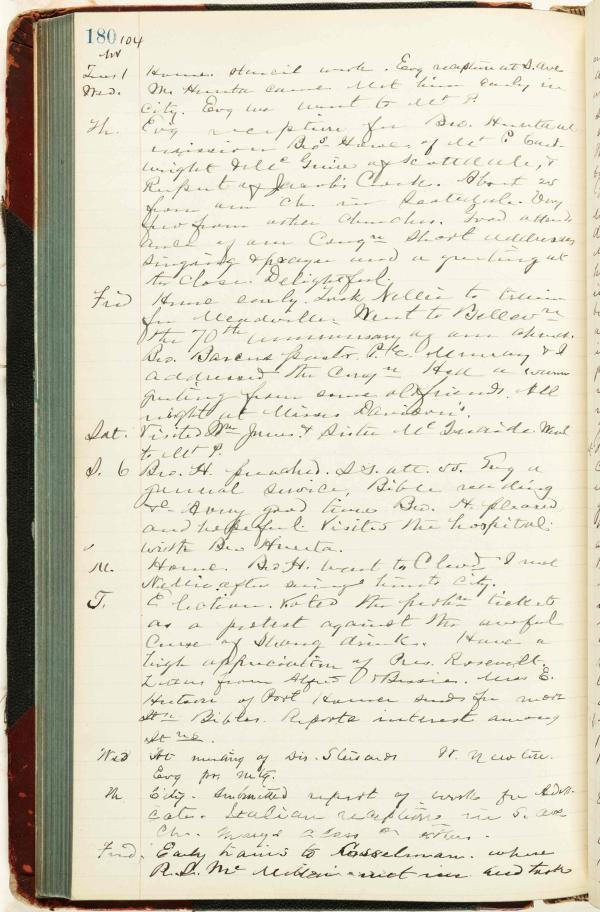 180 104
Nov
Tues 1 Home. Stencil work. Evg reception at 5. Ave
Wed. Mr Huerta came. Met him early in
City. Evg we went to Mt P.
Th. Evg reception for Bro. Huerta
mission Bros Howe of Mt P
wright & McGuire of Scottdale, &
of Jacobs Creek. About 25
from our Ch. in Scottdale. Very
few from other churches. Good attend
ance of our Congn Short addresses
singing & prayer and a greeting at
the close. Delightful.
Frid Home early. Took Nellie to train
for Meadville. Went to Bellevn
the 70th anniversary of our church.
Bro. pastor. P. C. Murray & I
addressed the Congn Had a warm
greeting from some old friends. All
night at Misses Davidson's.
Sat. Visited Wm Jones & Sister Mc Went
to Mt P.
S. 6 Bro. H. preached. S S. att. 55. Evg a
general service, Bible reading
&c. A very good time Bro. H. pleased
and hopeful. Visited the hospital
with Bro Huerta.
M. Home. Bro H. went to Clevd I met
Nellie after in City.
T. Election. Voted the prohn ticket
as a protest against the awful
curse of strong drink. Have a
high appreciation of Pres. Rosevelt.
Letters from & Bessie. Miss E.
Hutson of Port Homer sends for more
Bibles. Reports interest among

Wed At meeting of Dis. Stewards W. Newton.
Evg pr. mtg.
Th City. Submitted report of work for Advo
cate. Italian reception in 5. ave
Ch.
Frid. Early train to Casselman. where
R. L. McMillan met me and took